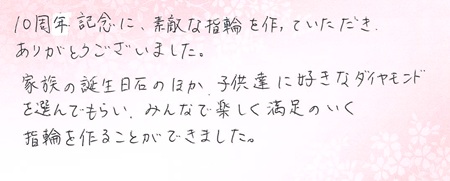 10周年記念に、素敵な指輪を作っていただき、
ありがとうございました。
家族の誕生日石のほか、子供達に好きなダイヤモンド
を選んでもらい、みんなで楽しく満足のいく
指輪を作ることができました。